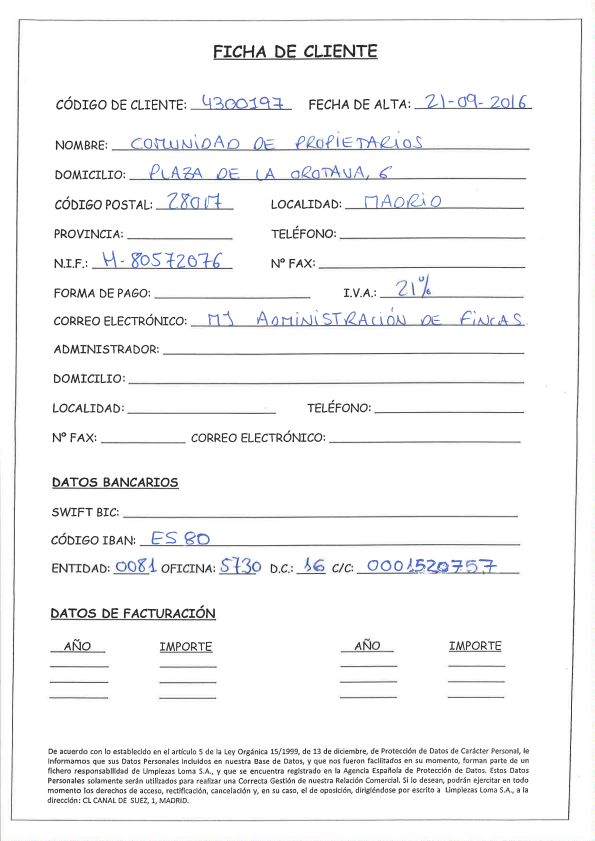 FICHA DE CLIENTE
CÓDIGO DE CLIENTE: 4300197 FECHA DE ALTA: 21-09-2016
NOMBRE: COMUNIDAD DE PROPIETARIOS
DOMICILIO: PLAZA DE LA OROTAVA, 6
CÓDIGO POSTAL: 28017 LOCALIDAD: MADRID
PROVINCIA: TELÉFONO:
N.I.F.: H-80572076 Nº FAX:
FORMA DE PAGO: I.V.A.: 21%
CORREO ELECTRÓNICO: MJ ADMINISTRACIÓN DE FINCAS
ADMINISTRADOR:
DOMICILIO:
LOCALIDAD: TELÉFONO:
Nº FAX: CORREO ELECTRÓNICO:
DATOS BANCARIOS
SWIFT BIC:
CÓDIGO IBAN: ES 80
ENTIDAD: 0081 OFICINA: 5730 D.C.: 16 C/C: 0001520757
DATOS DE FACTURACIÓN
AÑO IMPORTE AÑO IMPORTE
De acuerdo con lo establecido en el artículo 5 de la Ley Orgánica 15/1999, de 13 de diciembre, de Protección de Datos de Carácter Personal, le
informamos que sus Datos Personales incluidos en nuestra Base de Datos, y que nos fueron facilitados en su momento, forman parte de un
fichero responsabilidad de Limpiezas Loma S.A., y que se encuentra registrado en la Agencia Española de Protección de Datos. Estos Datos
Personales solamente serán utilizados para realizar una Correcta Gestión de nuestra Relación Comercial. Si lo desean, podrán ejercitar en todo
momento los derechos de acceso, rectificación, cancelación y, en su caso, el de oposición, dirigiéndose por escrito a Limpiezas Loma S.A., a la
dirección: CL CANAL DE SUEZ, 1, MADRID.